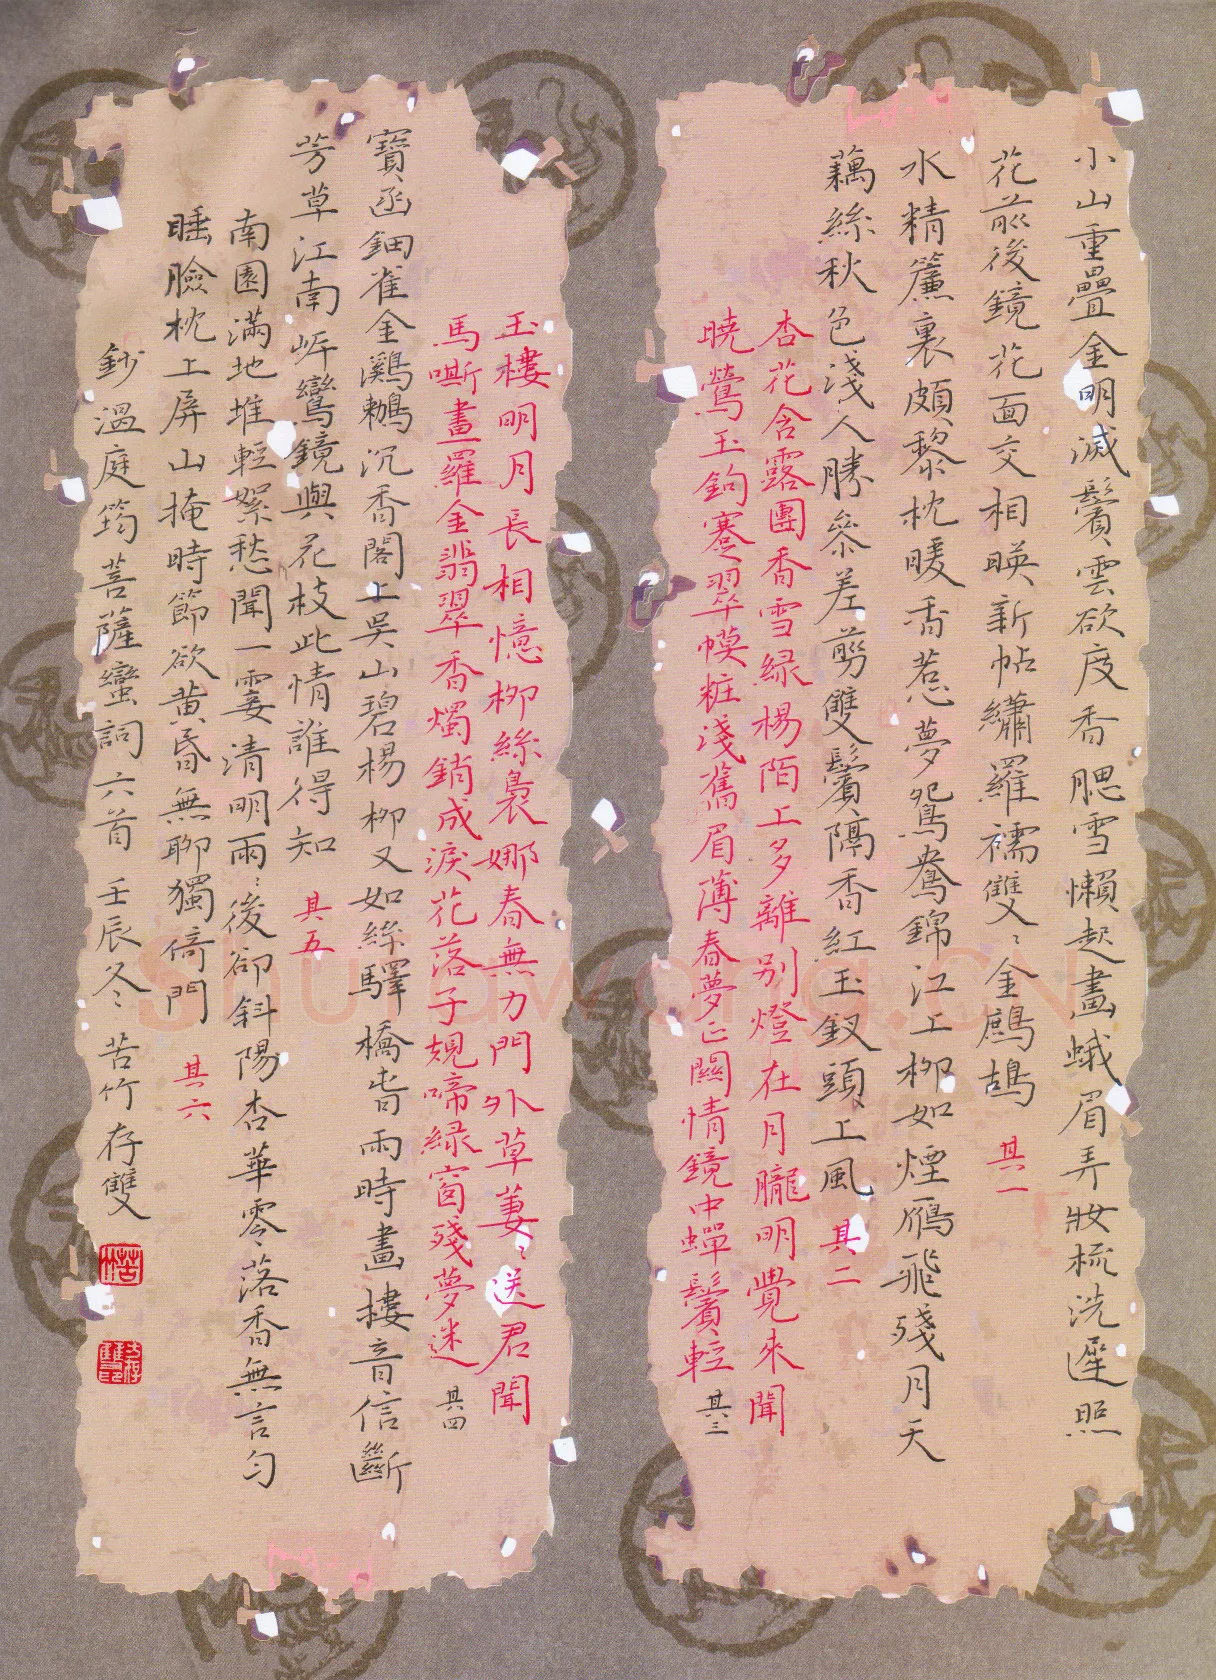 小山重疊金明滅鬢雲欲度香腮雪懶起畫蛾眉弄妝梳洗遲照
花前後鏡花面交相映新帖繡羅襦雙〻金鷓鴣 其一
水精簾裏頗黎枕暖香惹夢鴛鴦錦江上柳如煙雁飛殘月天
藕絲秋色淺人勝參差剪雙鬢隔香紅玉釵頭上風 其二
杏花含露團香雪綠楊陌上多離別燈在月朧明覺來聞
曉鶯玉鉤褰翠幙粧淺舊眉薄春夢正關情鏡中蟬鬢輕 其三
玉樓明月長相憶柳絲裊娜春無力門外草萋〻送君聞
馬嘶畫羅金翡翠香燭銷成淚花落子規啼綠窗殘夢迷 其四
寶函鈿雀金鸂鶒沉香閣上吳山碧楊柳又如絲驛橋春雨時畫樓音信斷
芳草江南岸鸞鏡與花枝此情誰得知 其五
南園滿地堆輕絮愁聞一霎清明雨〻後卻斜陽杏華零落香無言勻
睡臉枕上屏山掩時節欲黃昏無聊獨倚門 其六
鈔溫庭筠菩薩蠻詞六首 壬辰冬 苦竹存雙
Shufawang.CN